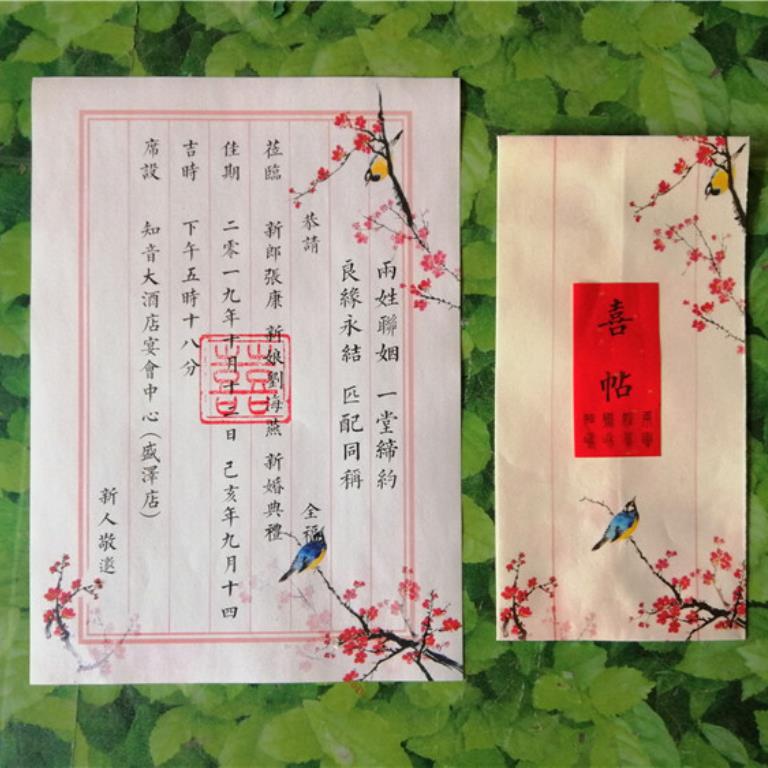 兩姓聯姻 一堂締約
良緣永結 匹配同稱
恭請 全福
莅臨 新郎張康 新娘劉海燕 新婚典禮
佳期 二零一九年十月十二日 己亥年九月十四
吉時 下午五時十八分
席設 知音大酒店宴會中心(盛澤店)
新人敬邀
囍
喜帖